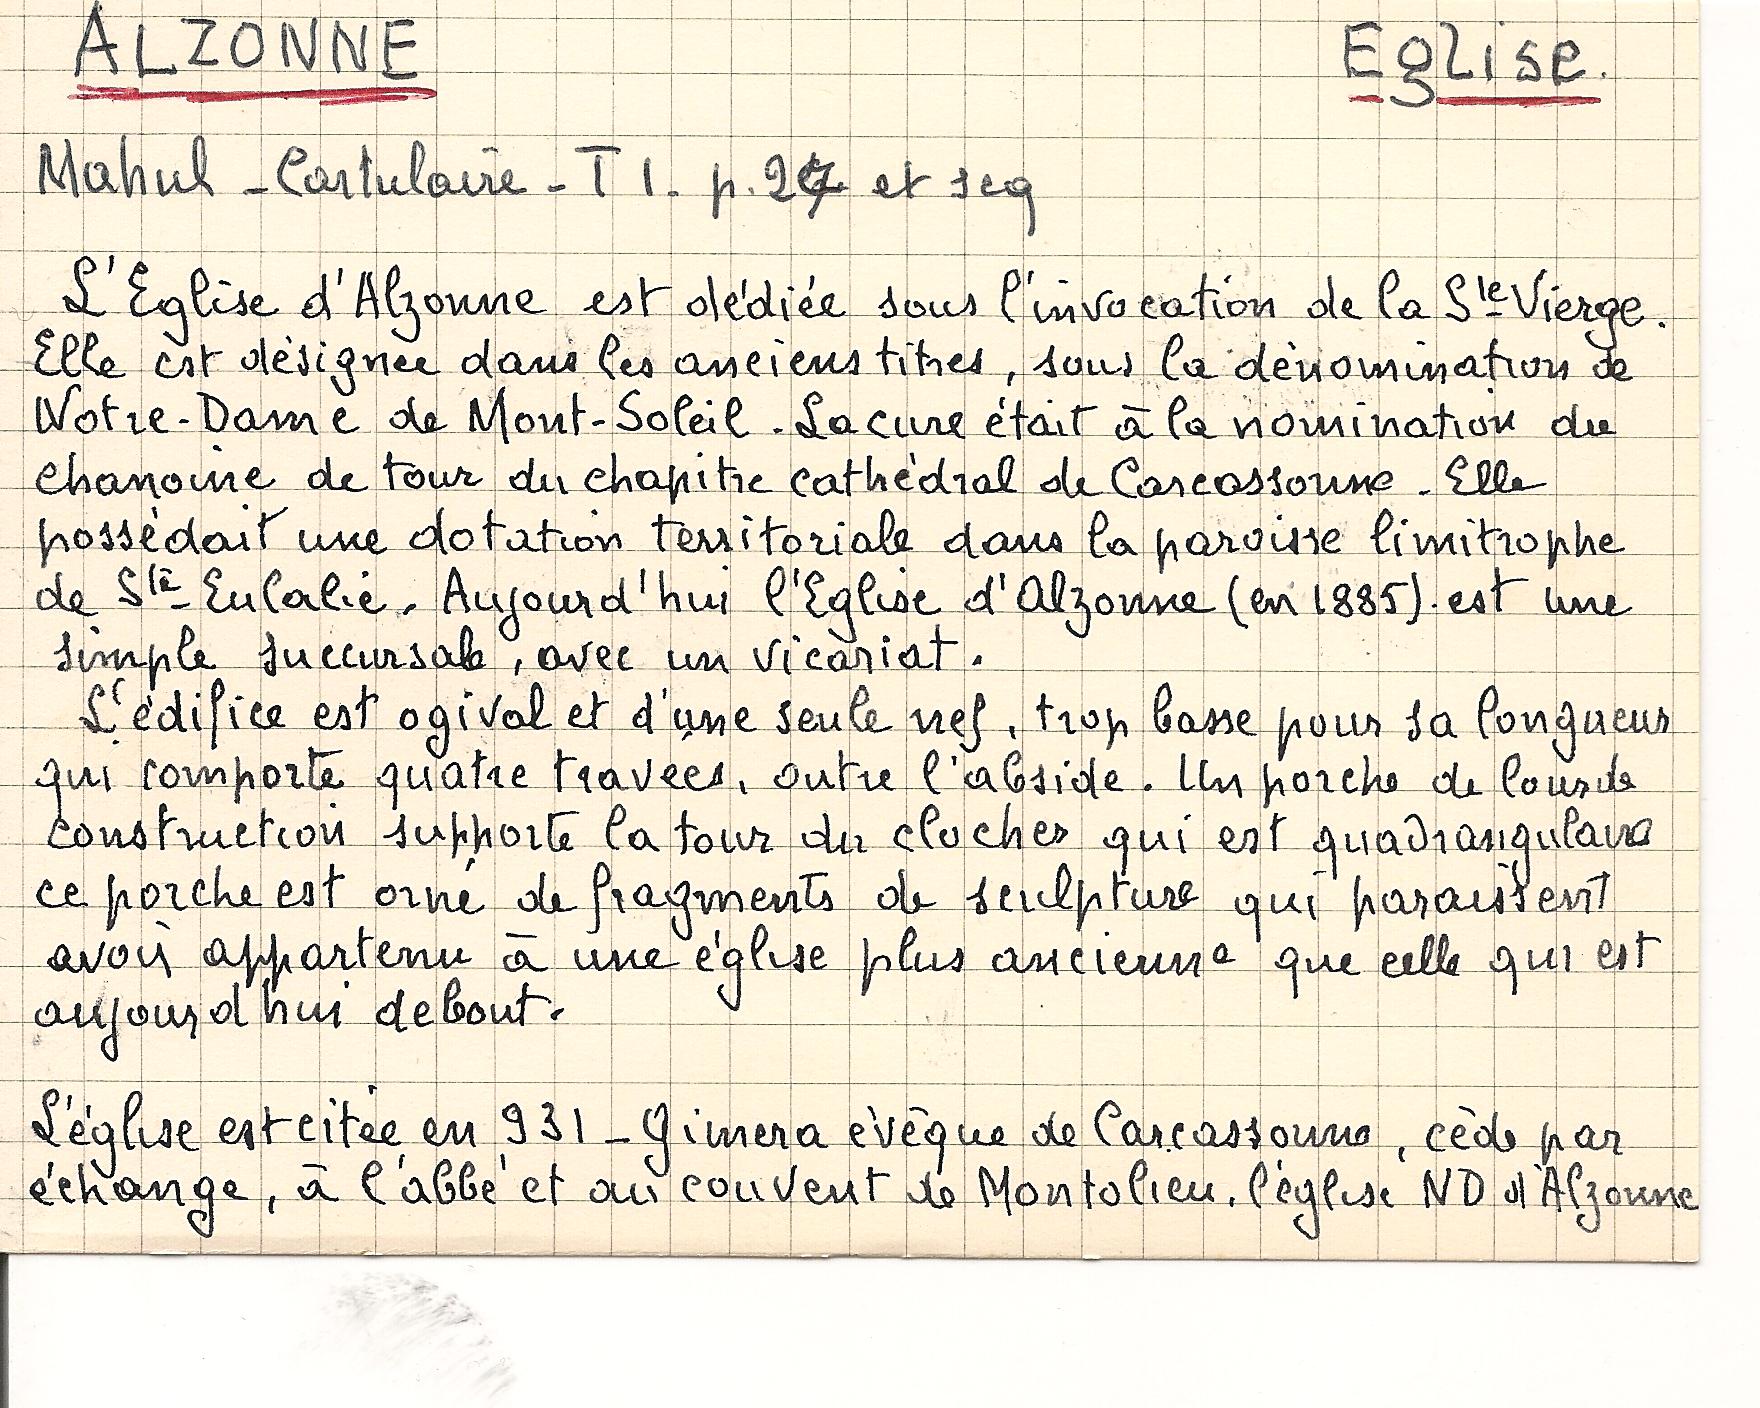 ALZONNE Eglise.
Mahul - Cartulaire - T 1. p. et seq
L'Eglise d'Alzonne est dédiée sous l'invocation de la Ste Vierge.
Elle est désignée dans les anciens titres, sous la dénomination de
Notre-Dame de Mont-Soleil. La cure était à la nomination du
chanoine de tour du chapitre cathédral de Carcassonne. Elle
possédait une dotation territoriale dans la paroisse limitrophe
de Ste Eulalie. Aujourd'hui l'Eglise d'Alzonne (en 1885). est une
simple succursale, avec un vicariat.
L'édifice est ogival et d'une seule nef, trop basse pour sa longueur
qui comporte quatre travées, outre l'abside. Un porche de lourde
construction supporte la tour du clocher qui est quadrangulaire
ce porche est orné de fragments de sculpture qui paraissent
avoir appartenu à une église plus ancienne que celle qui est
aujourd'hui debout.
L'église est citée en 931 - Gimera évêque de Carcassonne, cède par
échange, à l'abbé et au couvent de Montolieu. l'église ND d'Alzonne